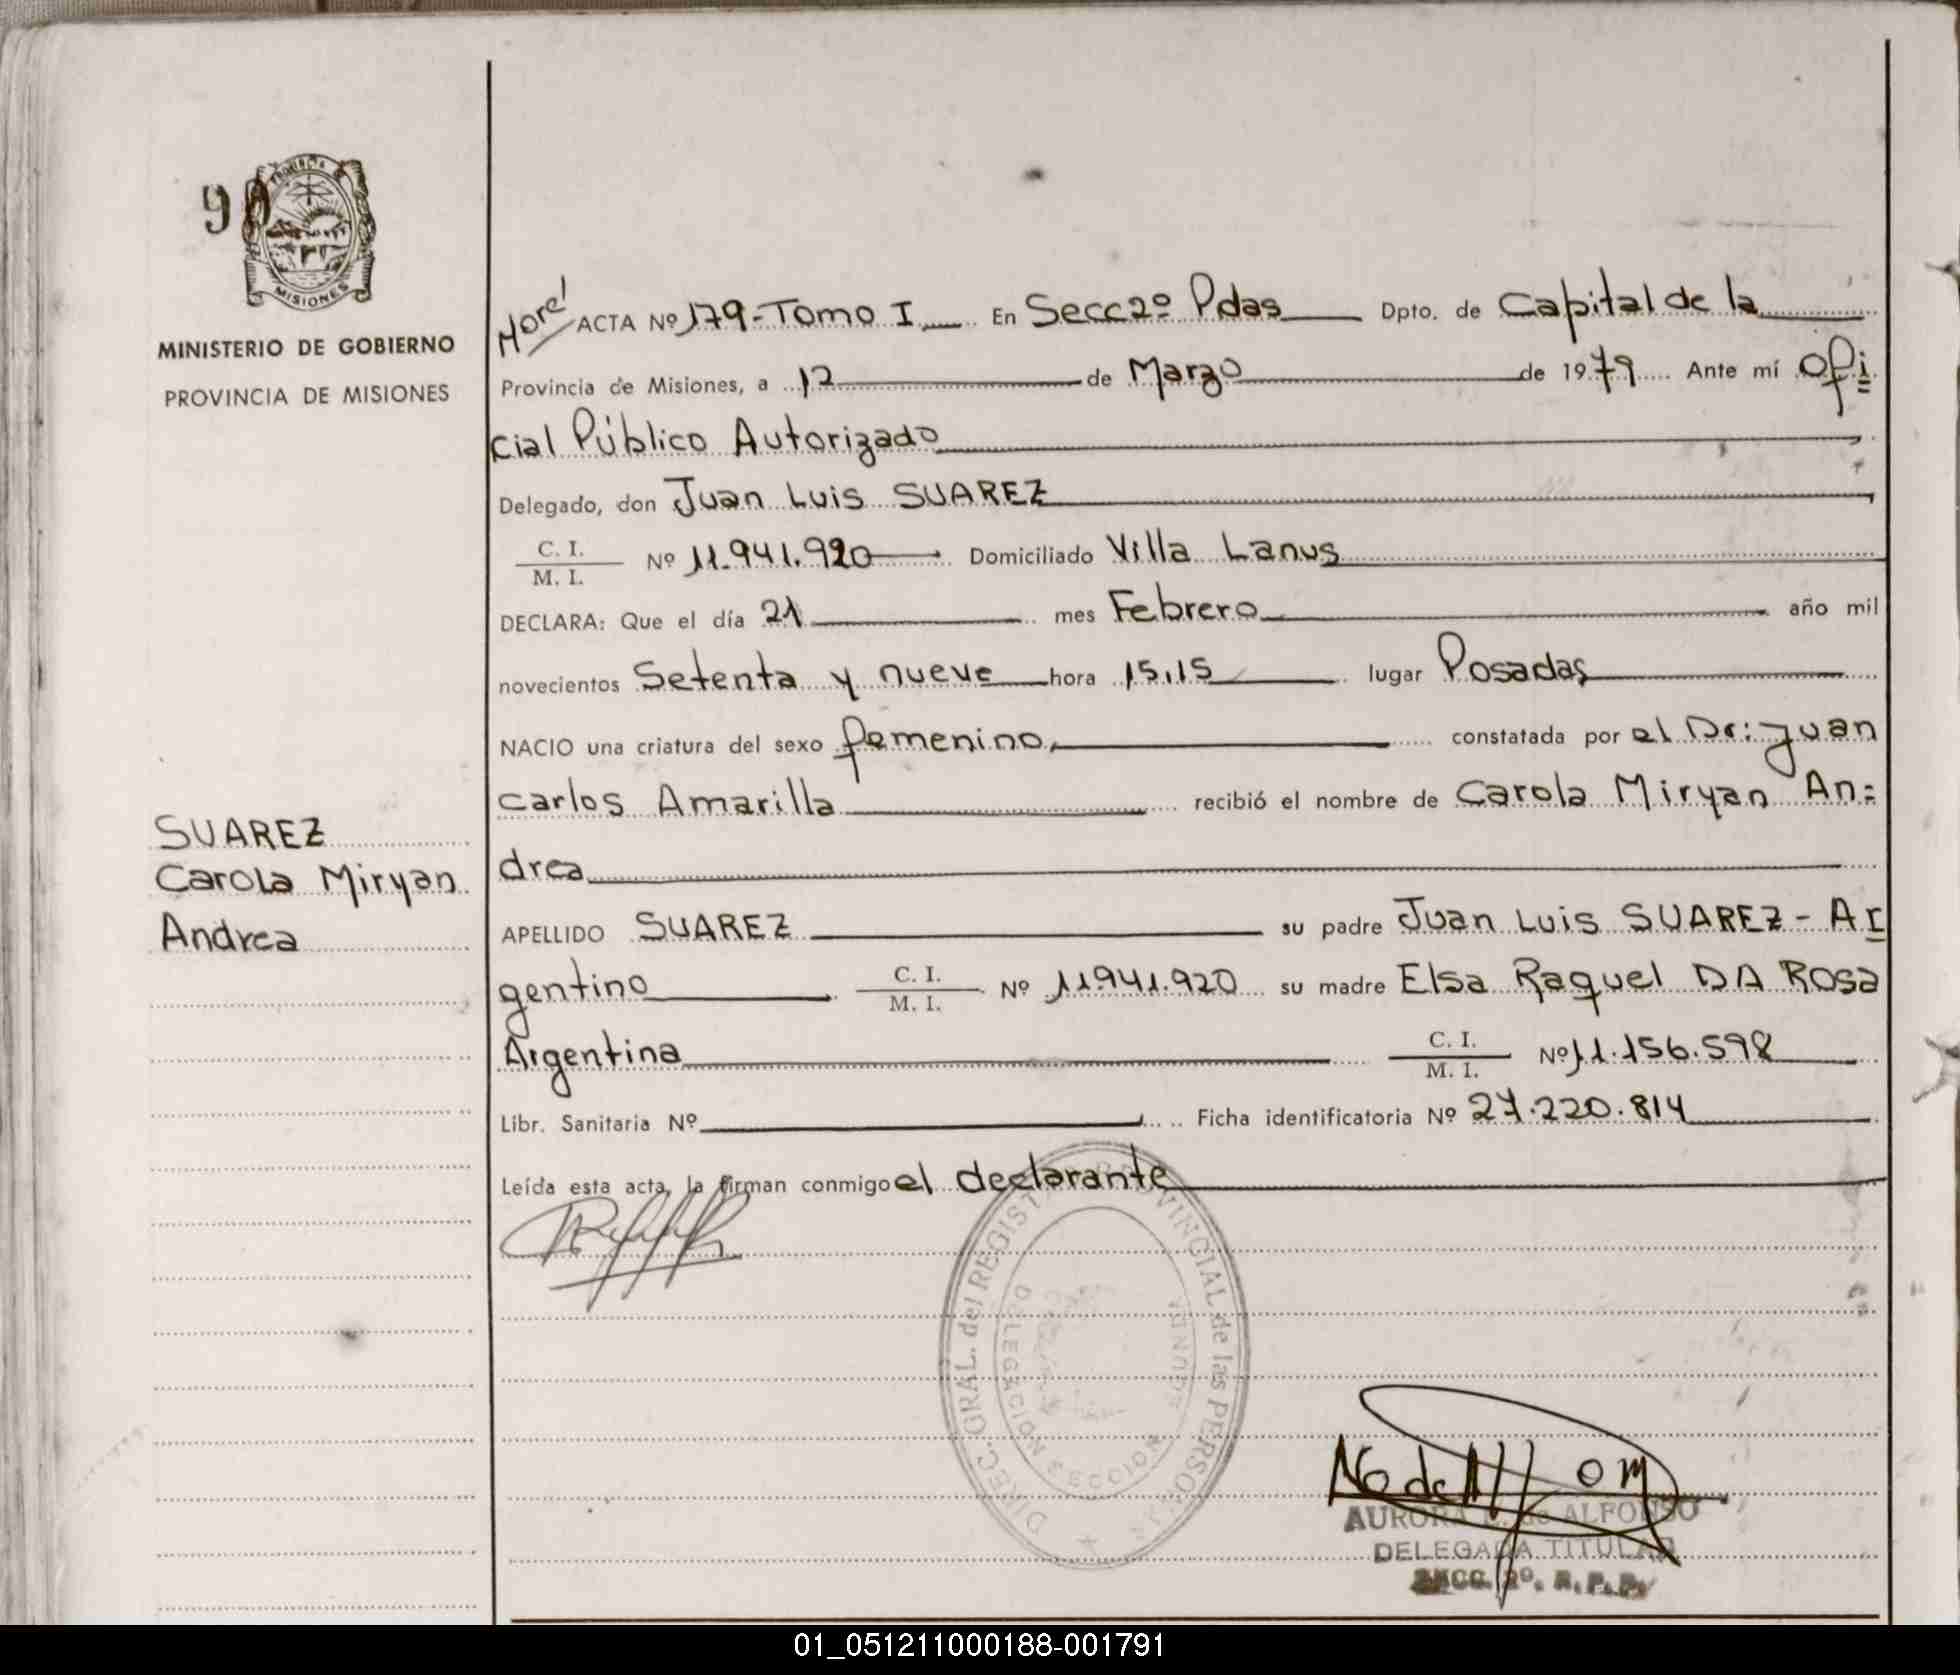 90
MISIONES
MINISTERIO DE GOBIERNO
PROVINCIA DE MISIONES
SUAREZ
Carola Miryan
Andrea
ACTA Nº 179-Tomo I En Secc 2º Pdas Dpto. de Capital de la
Provincia de Misiones, a 12 de Marzo de 1979 Ante mí Ofi
cial Público Autorizado
Delegado, don Juan Luis SUAREZ
C. I.
M. I. Nº 11.941.920 Domiciliado Villa Lanus
DECLARA: Que el día 21 mes Febrero año mil
novecientos Setenta y nueve hora 15,15 lugar Posadas
NACIO una criatura del sexo femenino, constatada por el Dr: Juan
Carlos Amarilla recibió el nombre de Carola Miryan An=
drea
APELLIDO SUAREZ su padre Juan Luis SUAREZ - Ar
gentino C. I.
M. I. Nº 11.941.920 su madre Elsa Raquel DA ROSA
Argentina C. I.
M. I. Nº 11.156.598
Libr. Sanitaria Nº Ficha identificatoria Nº 27.220.814
Leída esta acta, la firman conmigo el declarante
DIREC. GRAL. del REGISTRO PROVINCIAL de las PERSONAS
DELEGACION SECCION SEGUNDA
AURORA de ALFONSO
DELEGADA TITULAR
SECC. 2º. R. P. P.
01_051211000188-001791